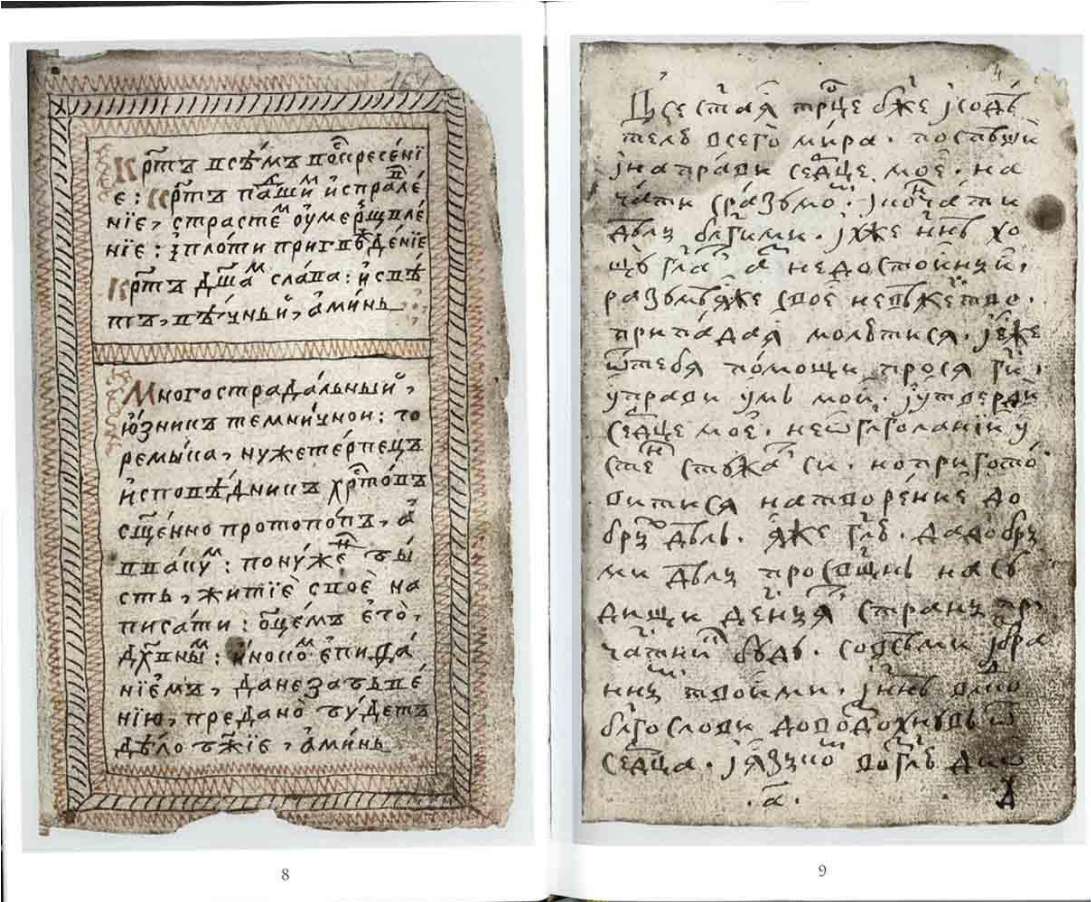 Крⷭ҇тъ всѣ́мъ воскресе́нї
е: крⷭ҇тъ па́дшиⷨ и҆справле́
нїе, страсте́ⷨ оу҆мерщвле́
нїе: ї плоти пригвожде́нїе
крⷭ҇тъ дш҃аⷨ слава: и҆ свѣ́
тъ, вѣ́чный, а҆ми́нь
Многострада́льный,
ю҆́зникъ темни́чнои: го
ремы́ка, нужетерпецъ
и҆сповѣ́дникъ хрⷭ҇то́въ
сщ҃е́нно протопо́пъ, а҆
вваку́ⷨ: пону́жеⷩ бы́
сть, житїѐ своѐ на
писа́ти: ѻ҆ц҃е́мъ е҆гѡ̀,
дх҃вныⷨ: и҆ноко́ⷨ е҆пифа́
нїемъ, да не забве́
нїю, предано̀ бу́детъ
дѣ́ло бж҃їе, а҆ми́нь
Всест҃а́ѧ трⷪ҇це бж҃е и содѣ́
телю всего̀ ми́ра. поспѣши
и напра́ви се́рⷣце моѐ. на
ча́ти с ра́зумоⷨ. и коⷩча́ти
дѣлы благими. ꙗже нн҃ѣ хо
щу гл҃аⷮ аⷥ недосто́йный.
разумѣѧ же своѐ невѣжеⷭ҇тво.
припа́даѧ молютисѧ. и е҆же
ѿ тебѧ по́мощи просѧ гдⷭ҇и.
у҆прави у҆мъ мой. и у҆тверди
се́рⷣце моѐ. не ѡ гл҃голании у
стеⷩ стужаⷮ си. но пригото́
витисѧ на творе́ние до
брыⷯ дѣлъ. ꙗ҆же гл҃ю. да добры
ми дѣлы просвѣщенъ на су
дищи десныѧ ти страны при
ча́стникъ буду. со всѣми избра
нными твои́ми. и нн҃ѣ влⷣко
бл҃гослови да воздохнувъ ѿ
се́рⷣца. и ꙗзы́коⷨ возгл҃ю дио
8
.а҃.
9